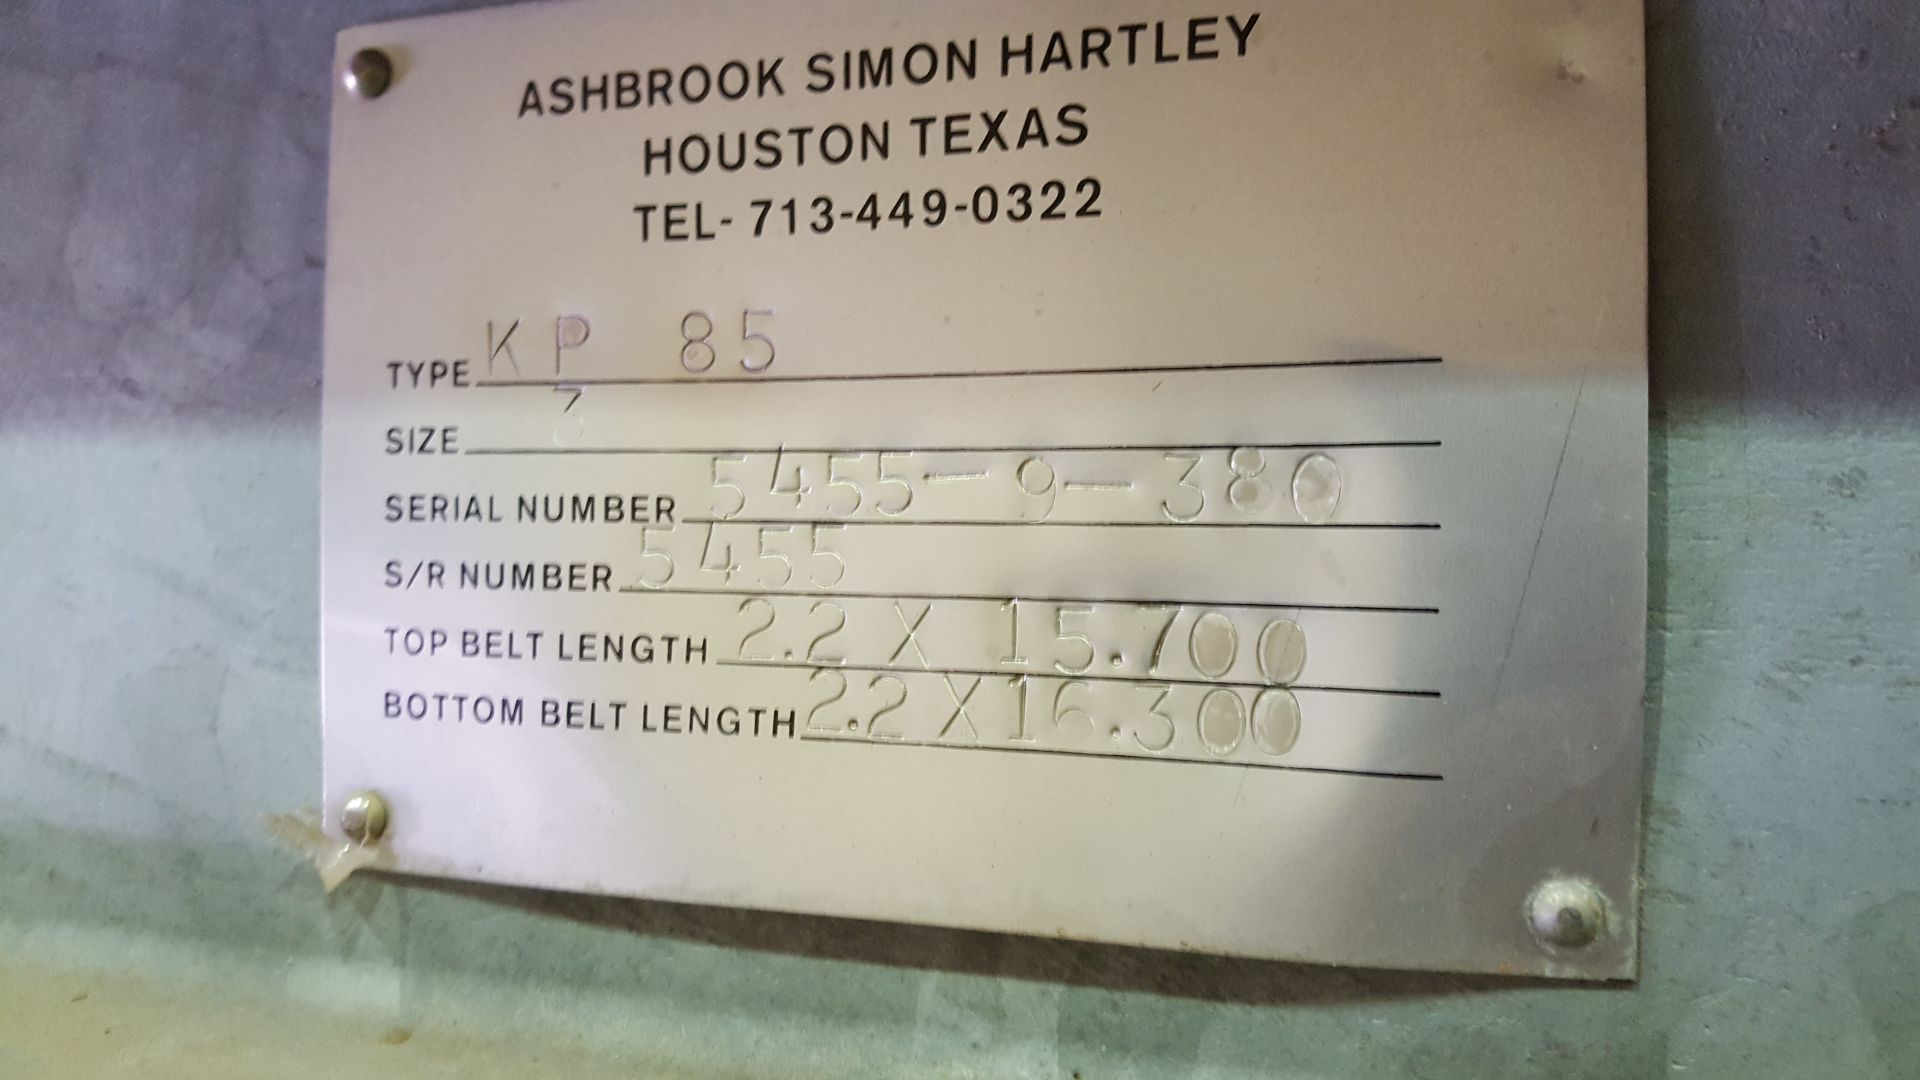 ASHBROOK SIMON HARTLEY
HOUSTON TEXAS
TEL- 713-449-0322
TYPE KP 85
SIZE 3
SERIAL NUMBER 5455-9-380
S/R NUMBER 5455
TOP BELT LENGTH 2.2 X 15.700
BOTTOM BELT LENGTH 2.2 X 16.300